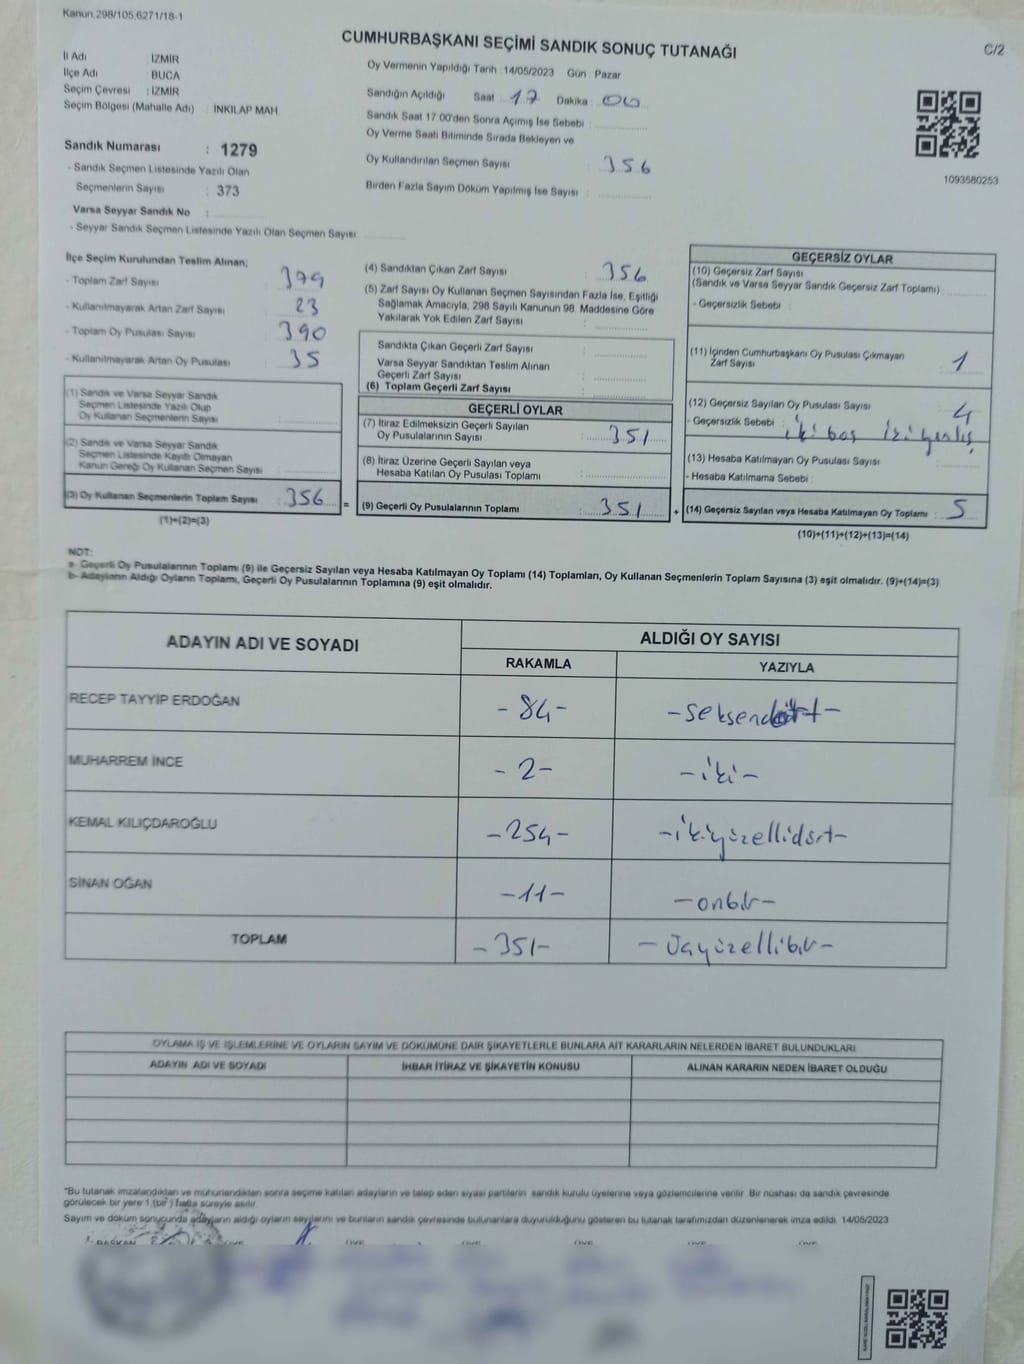 Kanun,298/105,6271/18-1
CUMHURBAŞKANI SEÇİMİ SANDIK SONUÇ TUTANAĞI
C/2
İl Adı : İZMİR
İlçe Adı : BUCA
Seçim Çevresi : İZMİR
Seçim Bölgesi (Mahalle Adı) : İNKILAP MAH.
Oy Vermenin Yapıldığı Tarih : 14/05/2023 Gün : Pazar
Sandığın Açıldığı Saat : 17 Dakika : 00
Sandık Saat 17:00'den Sonra Açımış İse Sebebi :
Oy Verme Saati Bitiminde Sırada Bekleyen ve
Oy Kullandırılan Seçmen Sayısı : 356
Birden Fazla Sayım Döküm Yapılmış İse Sayısı :
1093580253
Sandık Numarası : 1279
- Sandık Seçmen Listesinde Yazılı Olan
Seçmenlerin Sayısı : 373
Varsa Seyyar Sandık No :
- Seyyar Sandık Seçmen Listesinde Yazılı Olan Seçmen Sayısı:
İlçe Seçim Kurulundan Teslim Alınan;
- Toplam Zarf Sayısı : 379
- Kullanılmayarak Artan Zarf Sayısı : 23
- Toplam Oy Pusulası Sayısı : 390
- Kullanılmayarak Artan Oy Pusulası : 35
(1) Sandık ve Varsa Seyyar Sandık
Seçmen Listesinde Yazılı Olup
Oy Kullanan Seçmenlerin Sayısı :
(2) Sandık ve Varsa Seyyar Sandık
Seçmen Listesinde Kayıtlı Olmayan
Kanun Gereği Oy Kullanan Seçmen Sayısı :
(3) Oy Kullanan Seçmenlerin Toplam Sayısı : 356 =
(1)+(2)=(3)
(4) Sandıktan Çıkan Zarf Sayısı : 356
(5) Zarf Sayısı Oy Kullanan Seçmen Sayısından Fazla İse, Eşitliği
Sağlamak Amacıyla, 298 Sayılı Kanunun 98. Maddesine Göre
Yakılarak Yok Edilen Zarf Sayısı :
Sandıkta Çıkan Geçerli Zarf Sayısı :
Varsa Seyyar Sandıktan Teslim Alınan
Geçerli Zarf Sayısı :
(6) Toplam Geçerli Zarf Sayısı :
GEÇERLİ OYLAR
(7) İtiraz Edilmeksizin Geçerli Sayılan
Oy Pusulalarının Sayısı : 351
(8) İtiraz Üzerine Geçerli Sayılan veya
Hesaba Katılan Oy Pusulası Toplamı :
(9) Geçerli Oy Pusulalarının Toplamı : 351 +
GEÇERSİZ OYLAR
(10) Geçersiz Zarf Sayısı
(Sandık ve Varsa Seyyar Sandık Geçersiz Zarf Toplamı) :
- Geçersizlik Sebebi :
(11) İçinden Cumhurbaşkanı Oy Pusulası Çıkmayan
Zarf Sayısı : 1
(12) Geçersiz Sayılan Oy Pusulası Sayısı : 4
- Geçersizlik Sebebi : iki boş iki
(13) Hesaba Katılmayan Oy Pusulası Sayısı :
- Hesaba Katılmama Sebebi :
(14) Geçersiz Sayılan veya Hesaba Katılmayan Oy Toplamı : 5
(10)+(11)+(12)+(13)=(14)
NOT:
a- Geçerli Oy Pusulalarının Toplamı (9) ile Geçersiz Sayılan veya Hesaba Katılmayan Oy Toplamı (14) Toplamları, Oy Kullanan Seçmenlerin Toplam Sayısına (3) eşit olmalıdır. (9)+(14)=(3)
b- Adayların Aldığı Oyların Toplamı, Geçerli Oy Pusulalarının Toplamına (9) eşit olmalıdır.
ADAYIN ADI VE SOYADI
ALDIĞI OY SAYISI
RAKAMLA YAZIYLA
RECEP TAYYİP ERDOĞAN -84- -seksendört-
MUHARREM İNCE -2- -iki-
KEMAL KILIÇDAROĞLU -254- -ikiyüzellidört-
SİNAN OĞAN -11- -onbir-
TOPLAM -351- -üçyüzellibir-
OYLAMA İŞ VE İŞLEMLERİNE VE OYLARIN SAYIM VE DÖKÜMÜNE DAİR ŞİKAYETLERLE BUNLARA AİT KARARLARIN NELERDEN İBARET BULUNDUKLARI
ADAYIN ADI VE SOYADI İHBAR İTİRAZ VE ŞİKAYETİN KONUSU ALINAN KARARIN NEDEN İBARET OLDUĞU
"Bu tutanak imzalandıktan ve mühürlendikten sonra seçime katılan adayların ve talep eden siyasi partilerin sandık kurulu üyelerine veya gözlemcilerine verilir. Bir nüshası da sandık çevresinde
görülecek bir yere 1 (bir) hafta süreyle asılır.
Sayım ve döküm sonucunda adayların aldığı oyların sayılarını ve bunların sandık çevresinde bulunanlara duyurulduğunu gösteren bu tutanak tarafımızdan düzenlenerek imza edildi. 14/05/2023